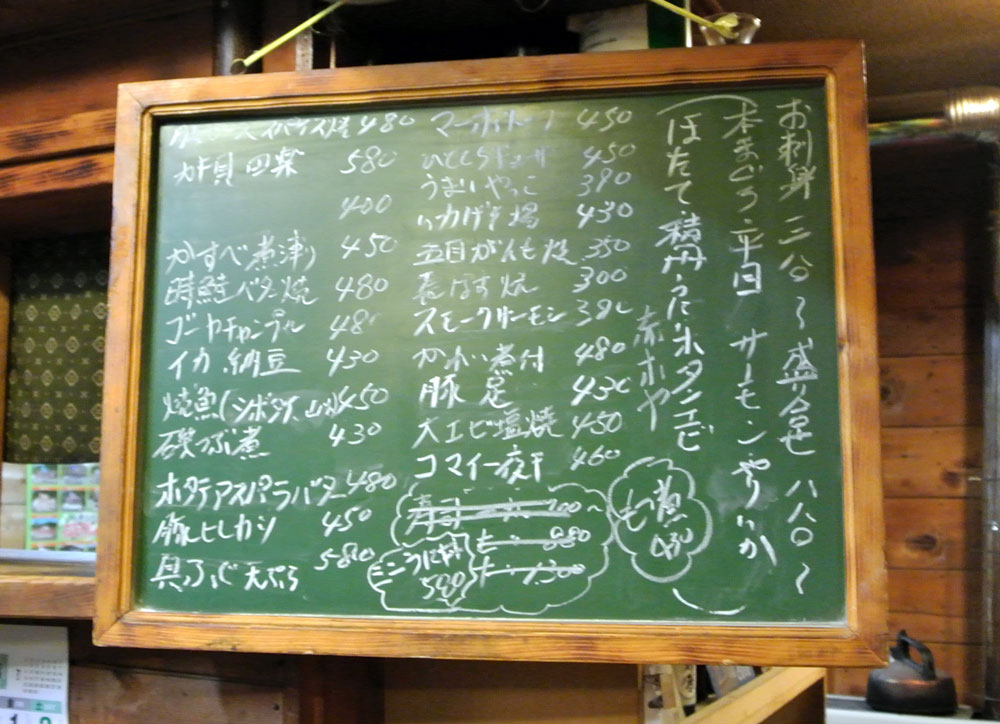 お刺身 三八〇〜 盛り合せ 八八〇〜
本まぐろ 平目 サーモン やりいか
ほたて 積丹うに ホタンエビ
赤ホヤ
450
ひとくちギョーザ 450
うまいやっこ 390
いかげそ揚 430
五目がんも焼 350
長なす焼 300
スモークサーモン 380
かれい煮付 480
豚足 430
大エビ塩焼 450
コマイ一夜干 460
もつ煮 430
寿司 700〜
880
1300
ミニうに丼
580
480
カキ貝 四粒 580
400
かすべ煮 450
時鮭バター焼 480
ゴーヤチャンプル 48
イカ納豆 430
焼魚 450
磯つぶ煮 430
ホタテアスパラバター 480
豚ヒレカツ 450
真ふぐ天ぷら 580